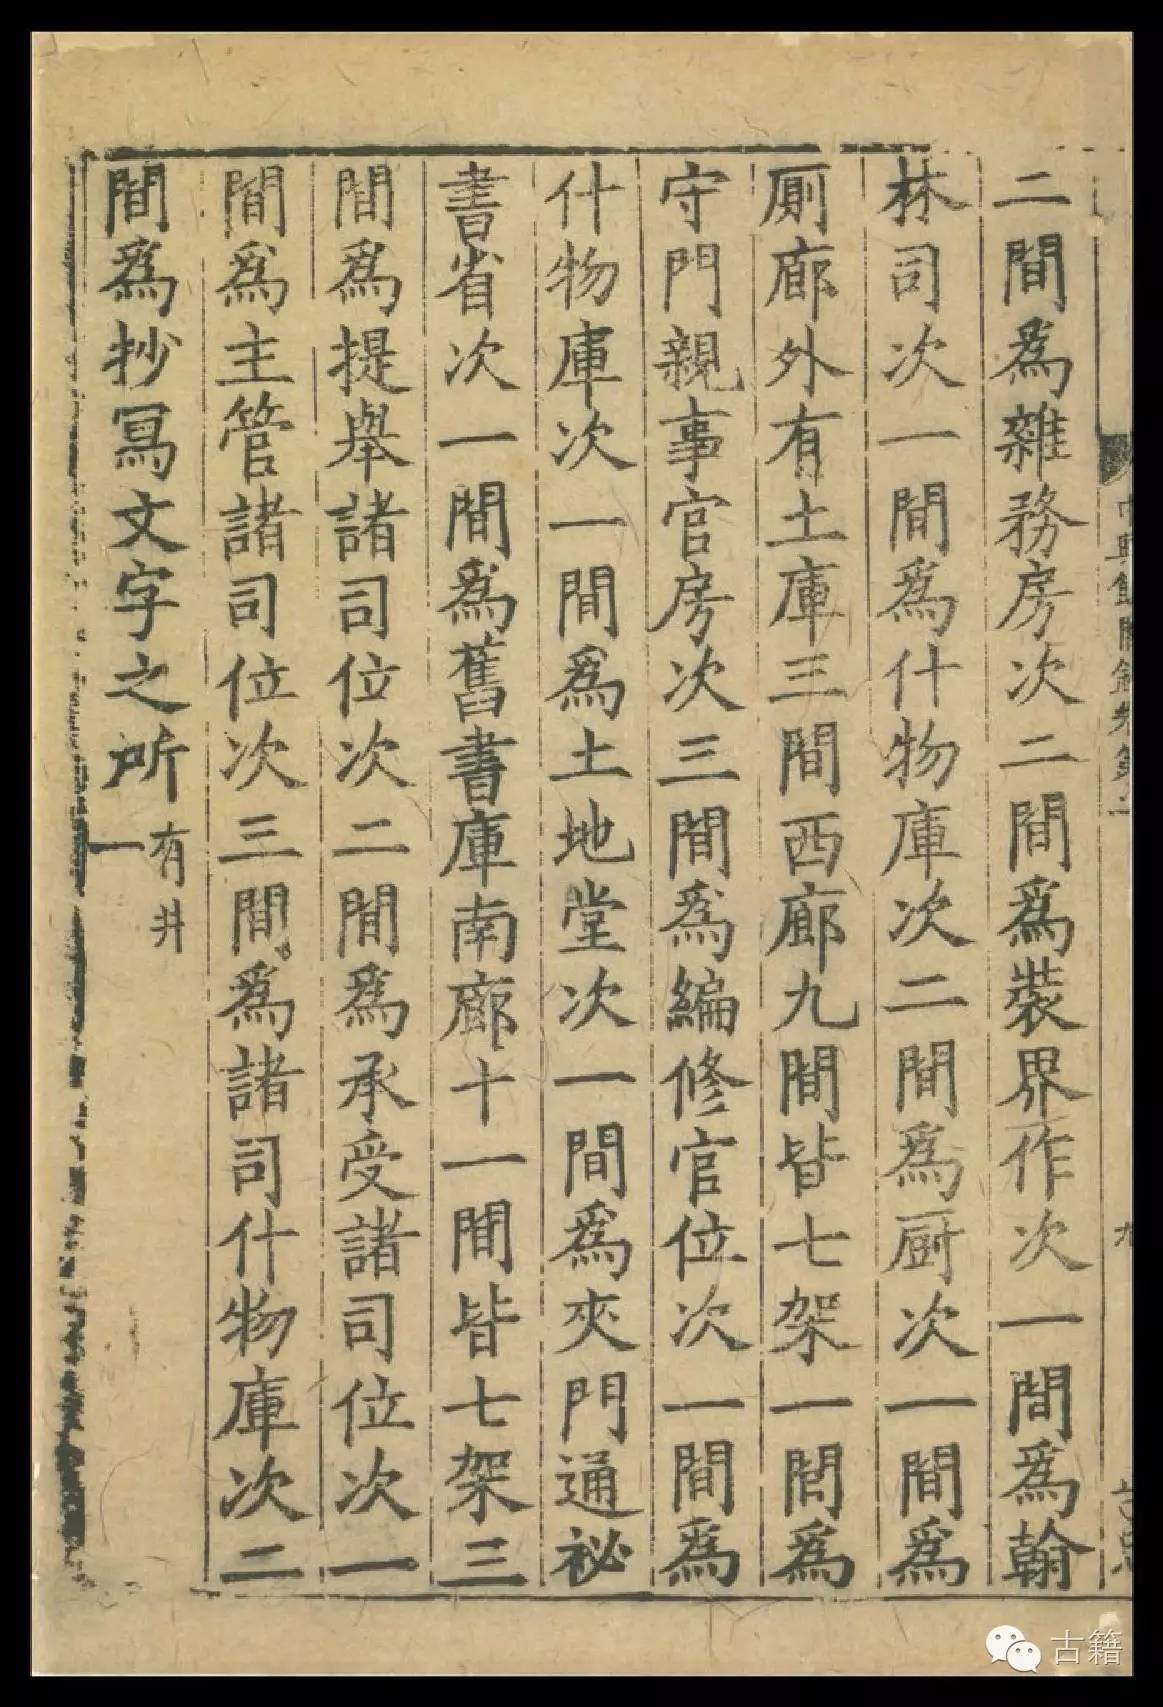 中興館閣錄卷第二
九
二間為雜務房次二間為裝界作次一間為翰
林司次一間為什物庫次二間為厨次一間為
厠廊外有土庫三間西廊九間皆七架一間為
守門親事官房次三間為編修官位次一間為
什物庫次一間為土地堂次一間為夾門通祕
書省次一間為舊書庫南廊十一間皆七架三
間為提舉諸司位次二間為承受諸司位次一
間為主管諸司位次三間為諸司什物庫次二
間為抄冩文字之所有井
一
古籍